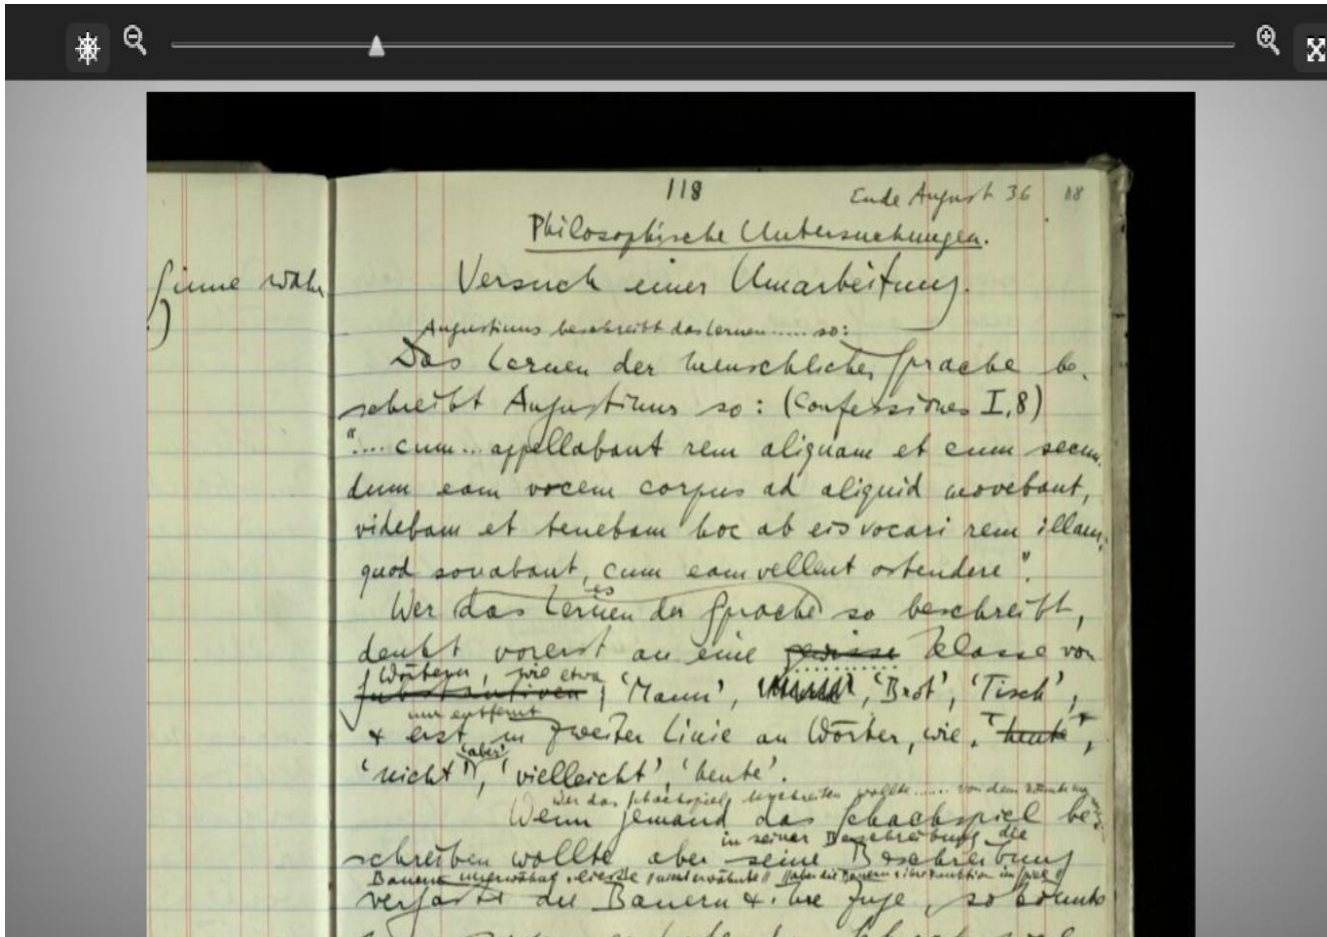 118
Ende August 36
118
Philosophische Untersuchungen.
Versuch einer Umarbeitung.
Sinne wahr
Augustinus beschreibt das Lernen ..... so:
Das Lernen der menschlichen Sprache be-
schreibt Augustinus so: (Confessiones I,8)
"....cum... appellabant rem aliquam et cum secun-
dum eam vocem corpus ad aliquid movebant,
videbam et tenebam hoc ab eis vocari rem illam,
quod sonabant, cum eam vellent ostendere".
es
Wer das Lernen der Sprache so beschreibt,
denkt vorerst an eine gewisse Klasse von
Wörtern, wie etwa
Substantiven, 'Mann', 'Brot', 'Tisch',
nur entfernt
& erst in zweiter Linie an Wörter, wie, 'heute',
'aber'
'nicht', 'vielleicht', 'heute'.
Wer das Schachspiel beschreiben wollte ...... von dem
Wenn jemand das Schachspiel be-
in seiner Beschreibung die
schreiben wollte aber seine Beschreibung
Bauern unerwähnt ließe unerwähnte aber die Bauern & ihre Funktion im Spiel
die Bauern & ihre Züge, so könnte